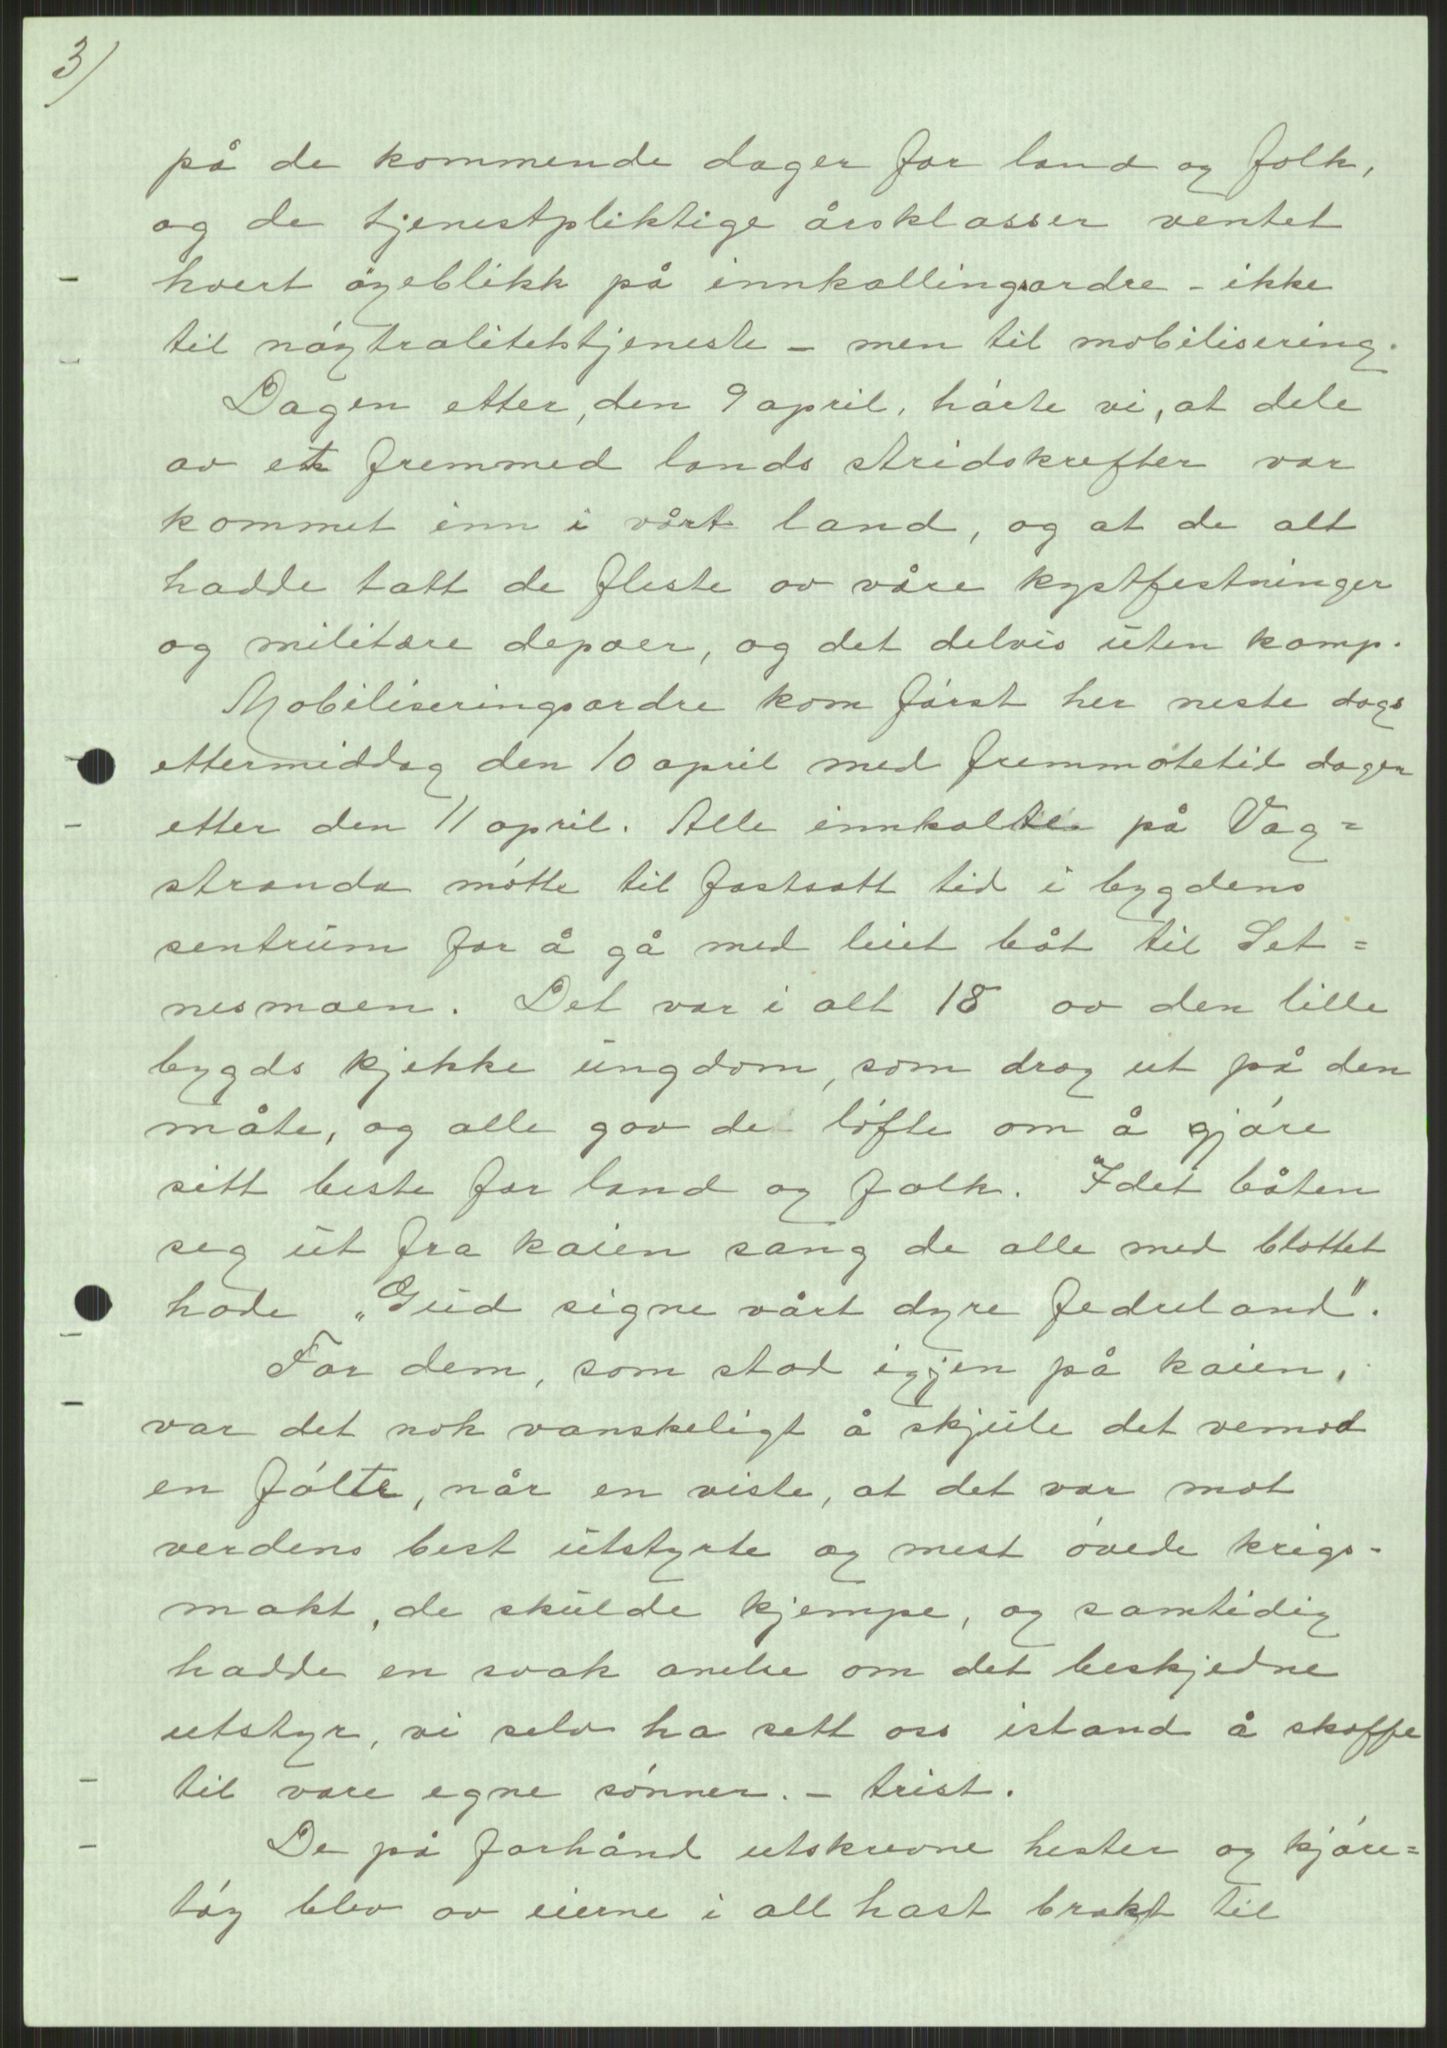 3/
på de kommende dager for land og folk,
og de tjenestpliktige årsklasser ventet
hvert øyeblikk på innkallingsordre - ikke
til nøytralitetstjeneste - men til mobilisering.
Dagen etter, den 9 april, hørte vi, at dele
av et fremmed lands stridskrefter var
kommet inn i vårt land, og at de alt
hadde tatt de fleste av våre kystfestninger
og militære depoer, og det delvis uten kamp.
Mobiliseringsordre kom først her neste dags
ettermiddag den 10 april med fremmøtetid dagen
etter den 11 april. Alle innkalte på Våg=
stranda møtte til fastsatt tid i bygdens
sentrum for å gå med leiet båt til Set=
nesmoen. Det var i alt 18 av den lille
bygds kjekke ungdom, som drog ut på den
måte, og alle gav de løfte om å gjøre
sitt beste for land og folk. Idet båten
seg ut fra kaien sang de alle med blottet
hode „Gud signe vårt dyre fedreland".
For dem, som stod igjen på kaien,
var det nok vanskeligt å skjule det vemod
en følte, når en viste, at det var mot
verdens best utstyrte og mest øvede krigs-
makt, de skulde kjempe, og samtidig
hadde en svak anelse om det beskjedne
utstyr, vi selv ha sett oss istand å skaffe
til våre egne sønner. - trist.
De på forhånd utskrevne hester og kjøre=
tøy blev av eierne i all hast brakt til